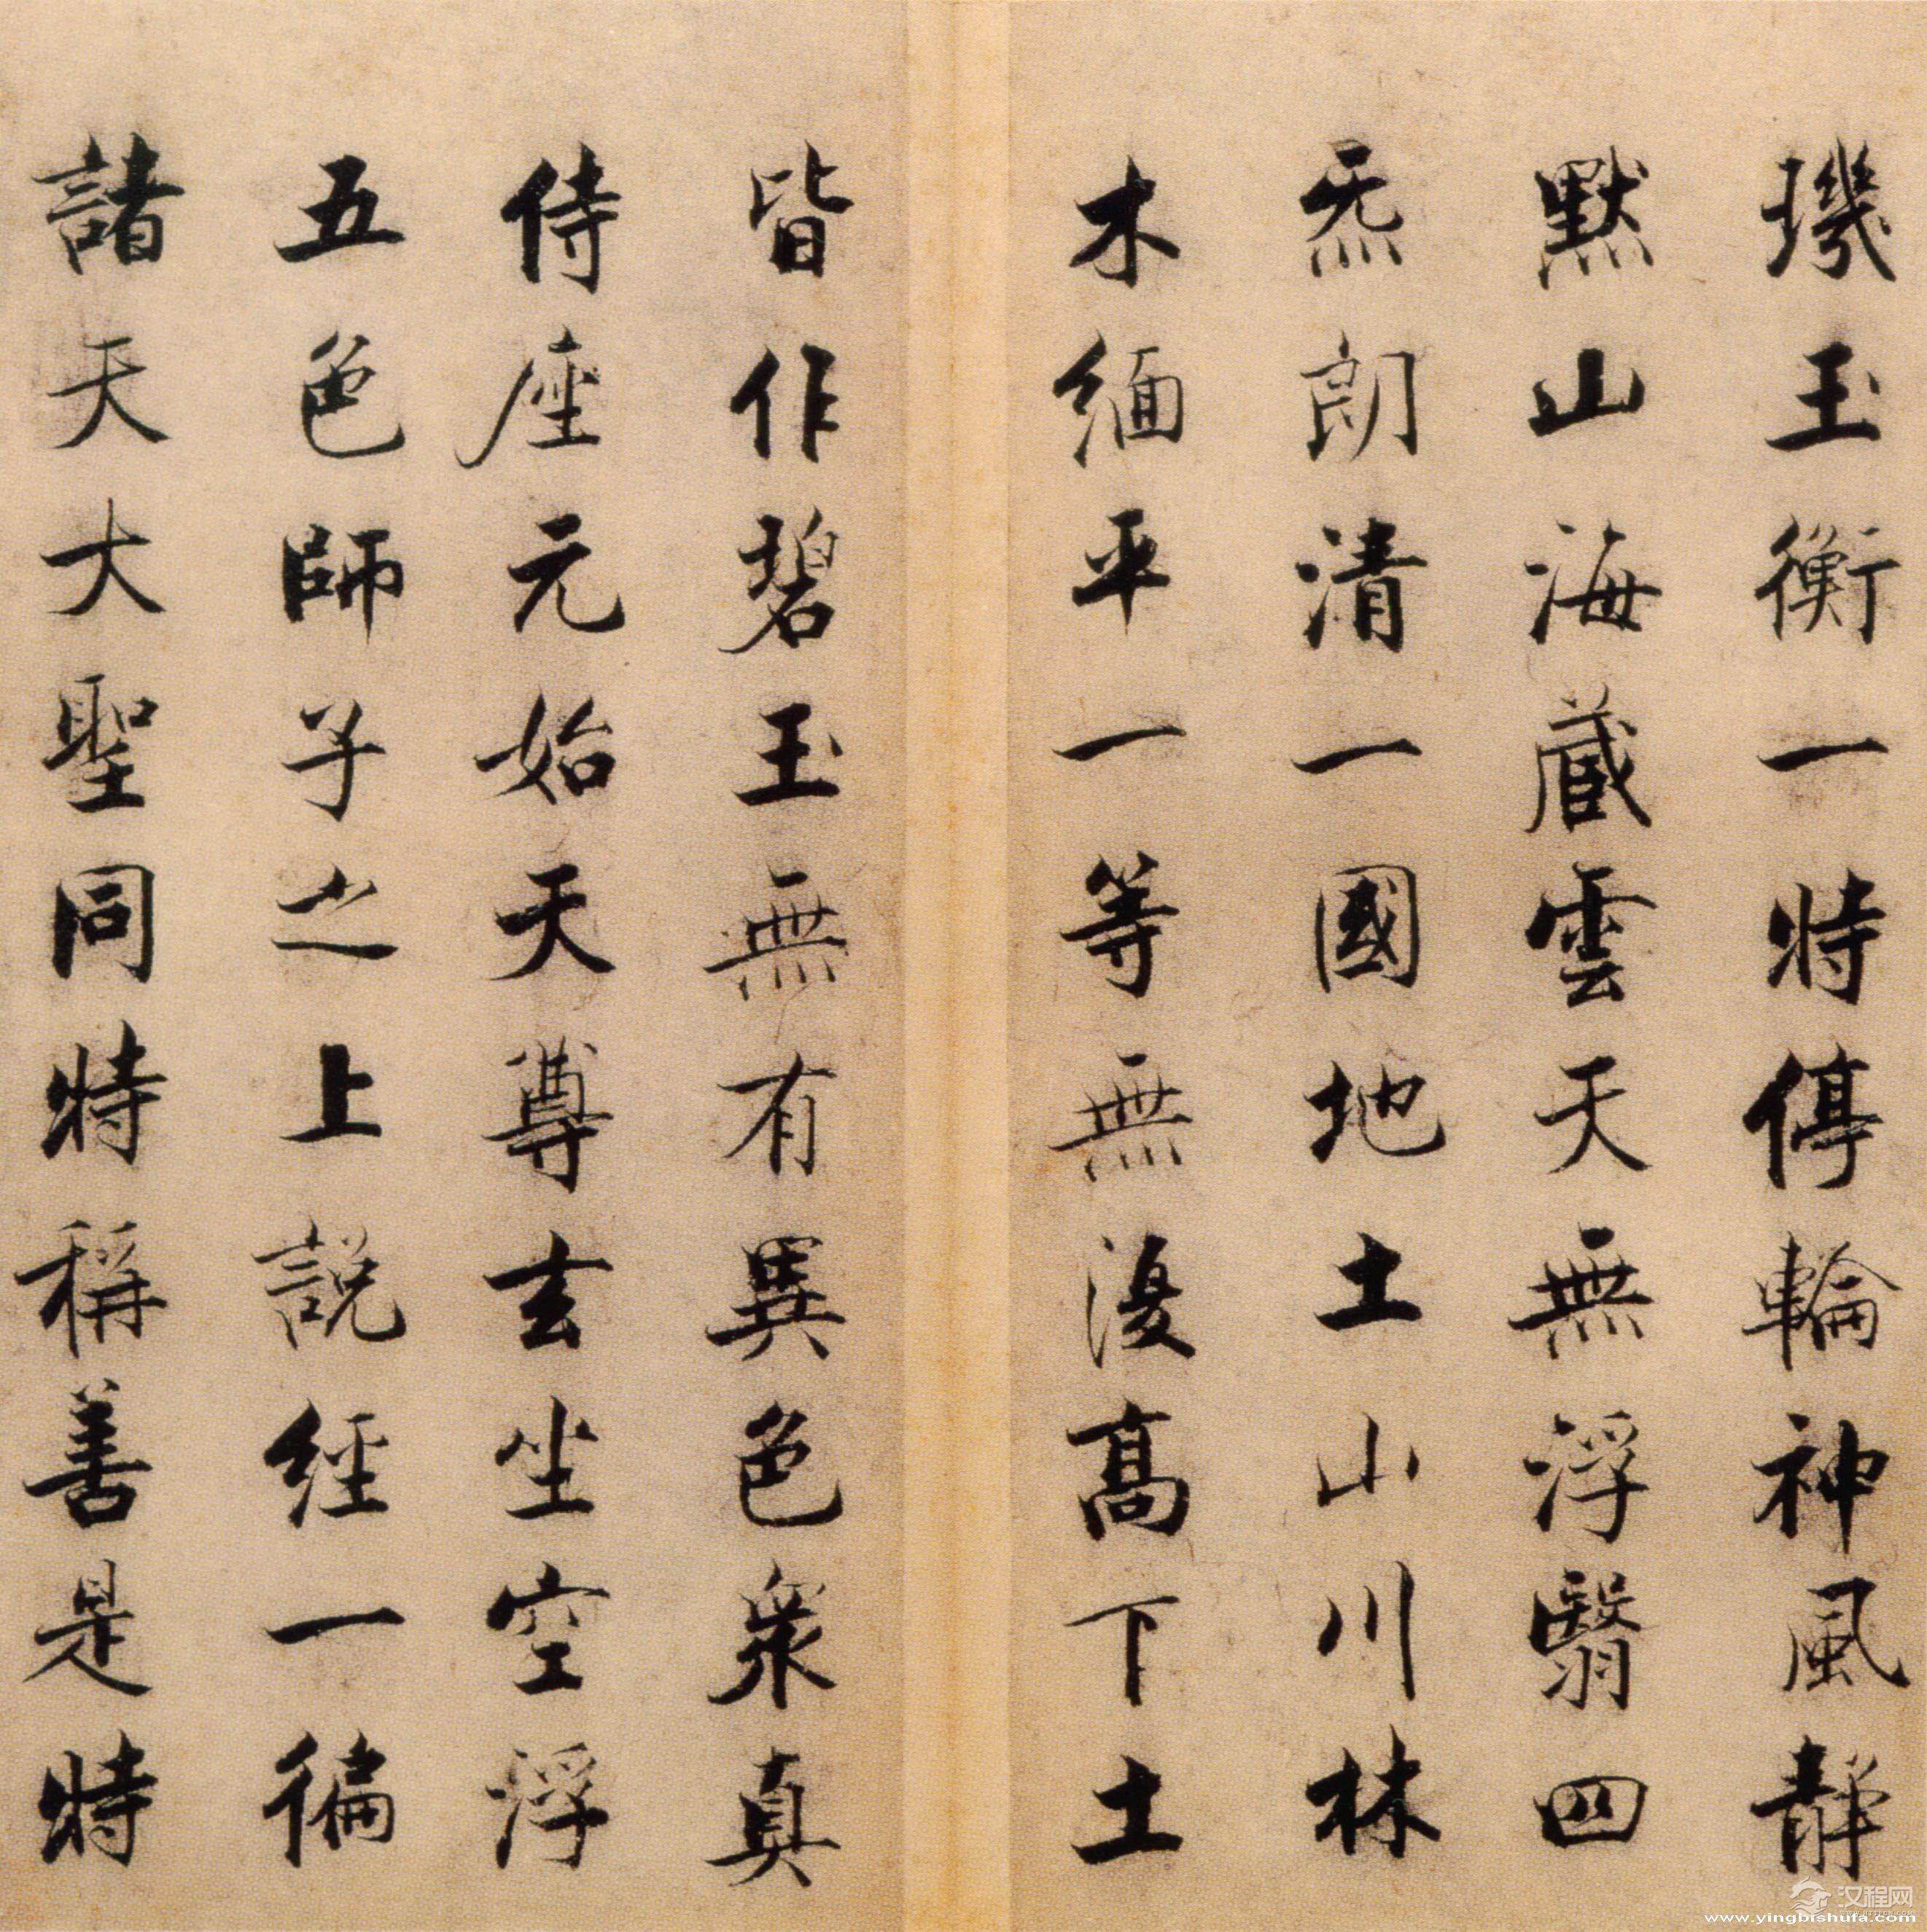 璣玉衡一時停輪神風靜
默山海藏雲天無浮翳四
炁朗清一國地土山川林
木緬平一等無復高下土
皆作碧玉無有異色衆真
侍座元始天尊玄坐空浮
五色師子之上說經一徧
諸天大聖同時稱善是時
汉程网
www.yingbishufa.com